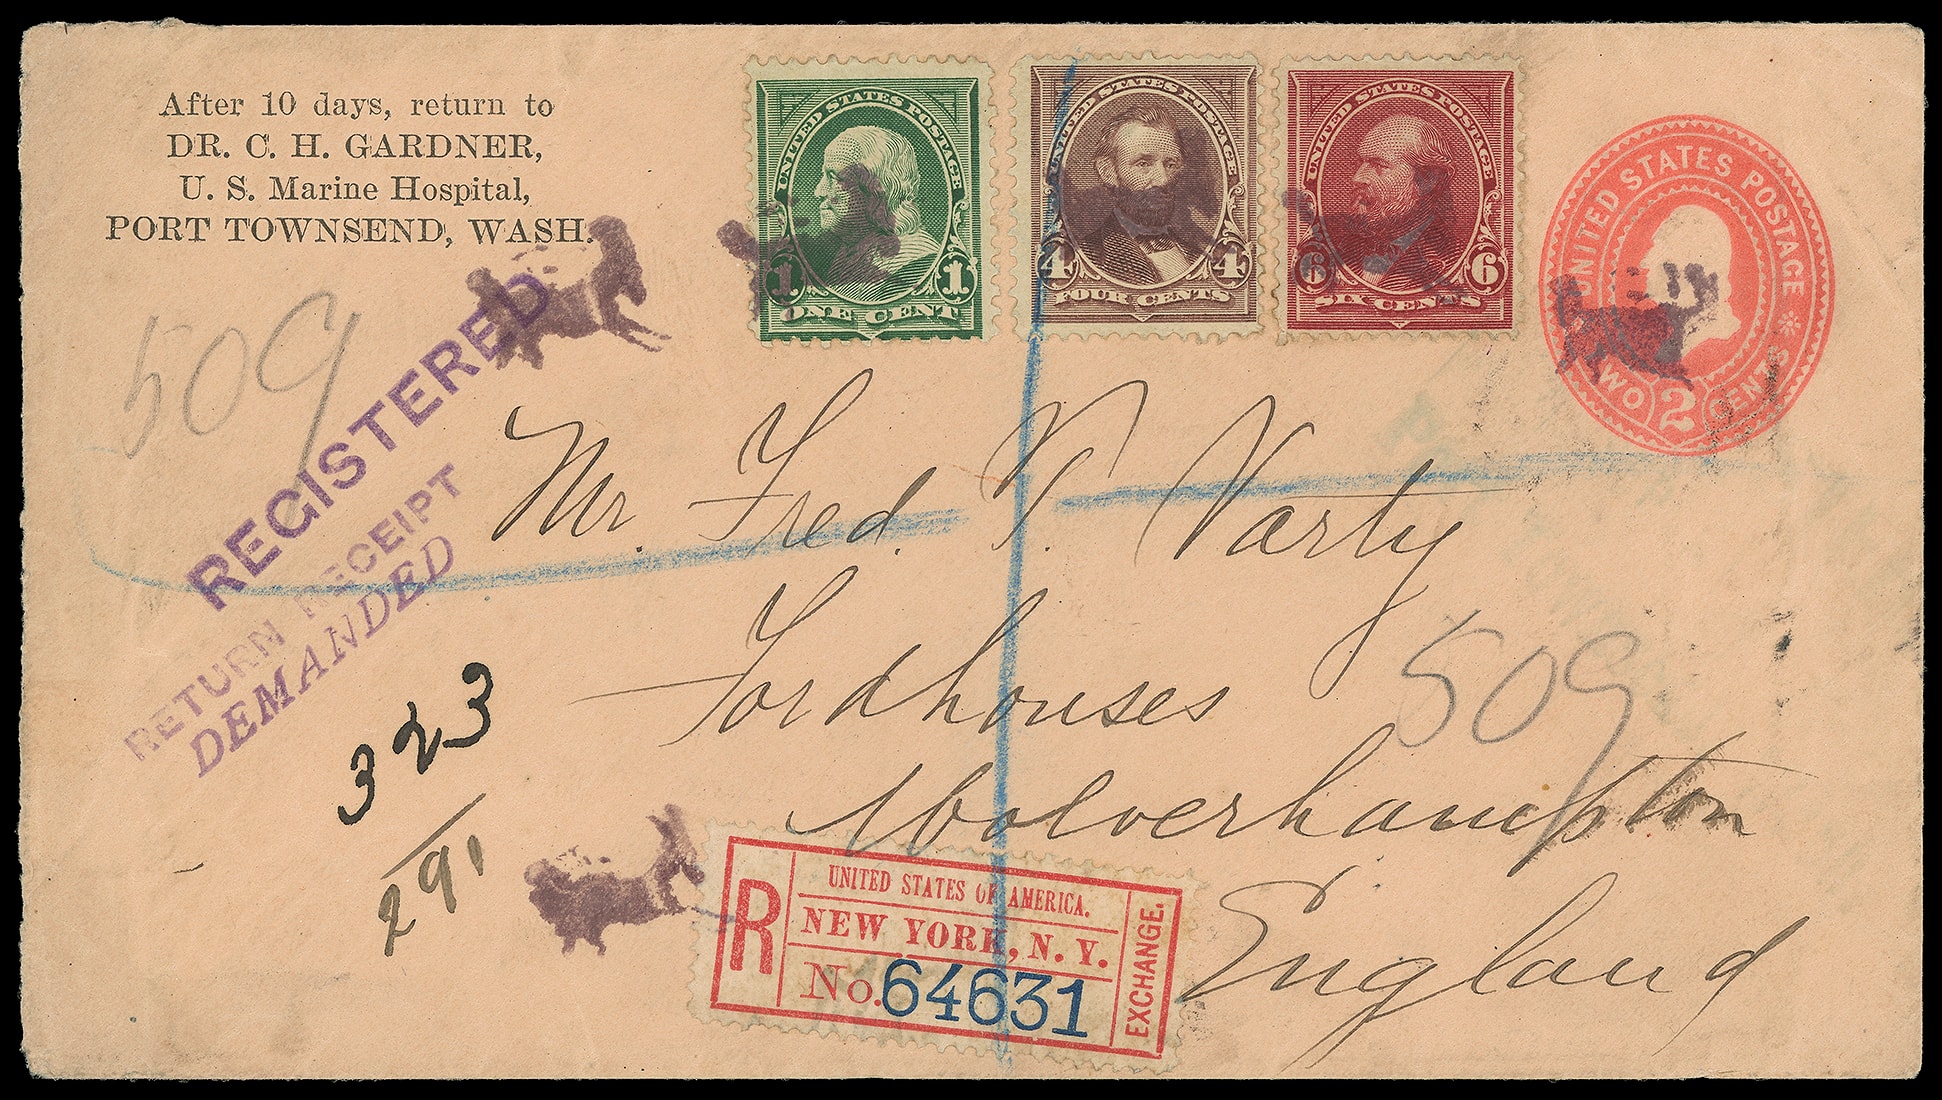 After 10 days, return to
DR. C. H. GARDNER,
U. S. Marine Hospital,
PORT TOWNSEND, WASH.
UNITED STATES POSTAGE
1 1
ONE CENT
UNITED STATES POSTAGE
4 4
FOUR CENTS
UNITED STATES POSTAGE
6 6
SIX CENTS
UNITED STATES POSTAGE
TWO 2 CENTS
509
REGISTERED
RETURN RECEIPT
DEMANDED
Mr. Fred. V. Varty
Fordhouses
509
Wolverhampton
England
323
291
R
UNITED STATES OF AMERICA.
NEW YORK, N. Y.
No. 64631
EXCHANGE.